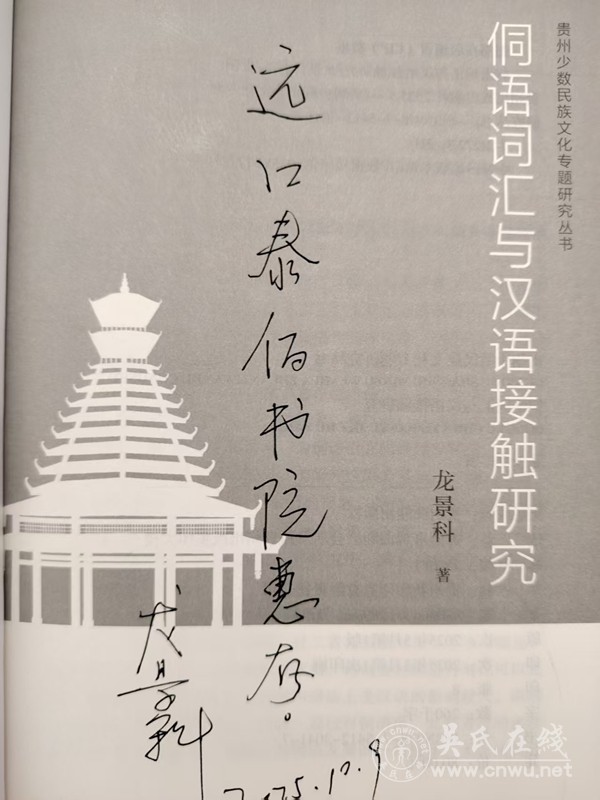 贵州少数民族文化专题研究丛书
侗语词汇与汉语接触研究
龙景科 著
远江泰伯书院惠存。
龙景科
2025.10.9
吴氏在线
www.cnwu.net